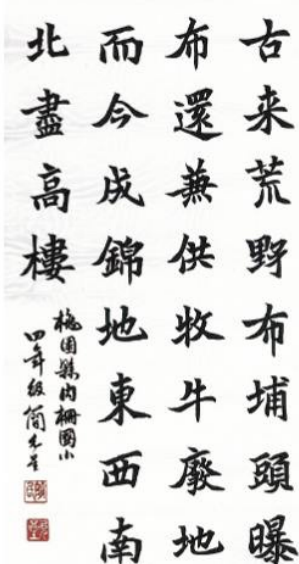 古来荒野布埔頭曝
布還兼供牧牛廢地
而今成錦地東西南
北盡高樓
桃園縣內柵國小
四年級簡